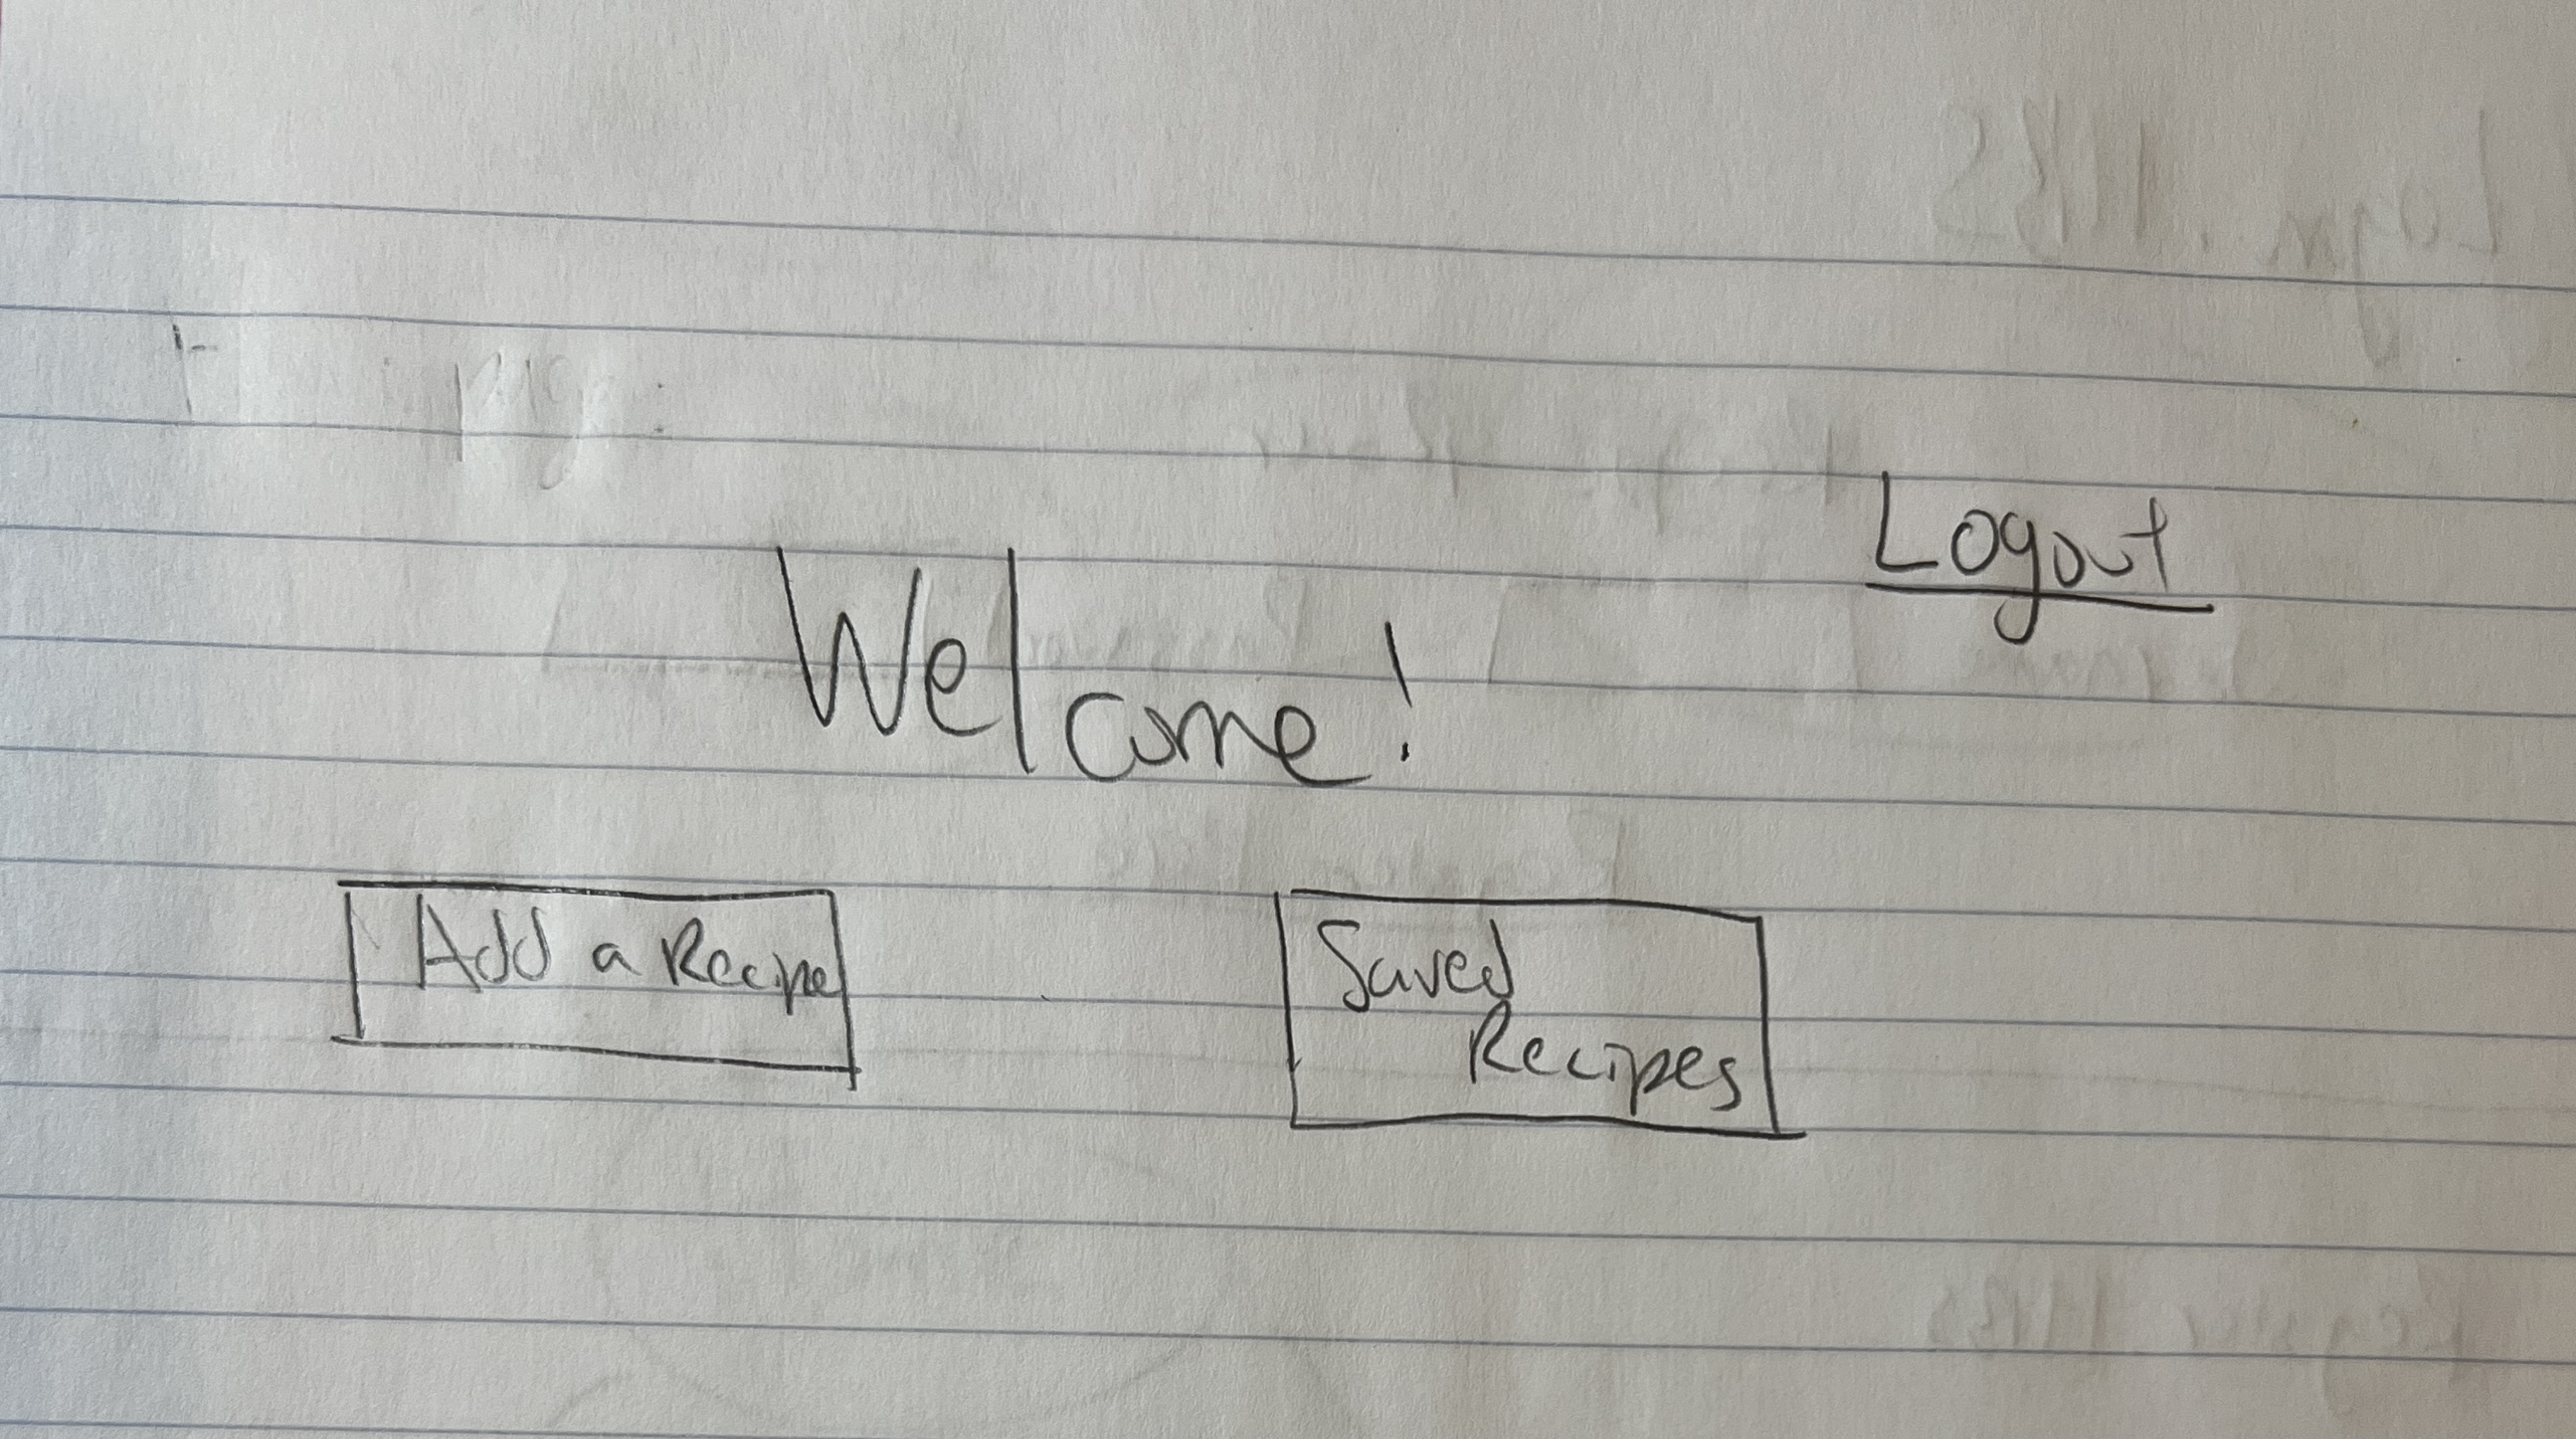 Logout
Welcome!
Add a Recipe
Saved
Recipes